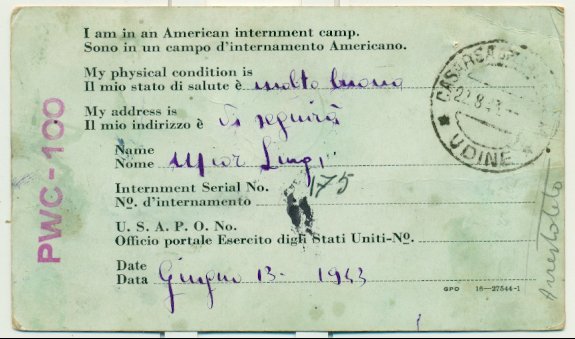 I am in an American internment camp.
Sono in un campo d'internamento Americano.
My physical condition is
Il mio stato di salute è molto buona
My address is
Il mio indirizzo è Vi seguirà
Name
Nome Mior Luigi
Internment Serial No.
Nº. d'internamento 175
U. S. A. P. O. No.
Officio portale Esercito digli Stati Uniti-Nº.
Date
Data Giugno 13 - 1943
GPO 16—27544-1
PWC-100
CASARSA
UDINE